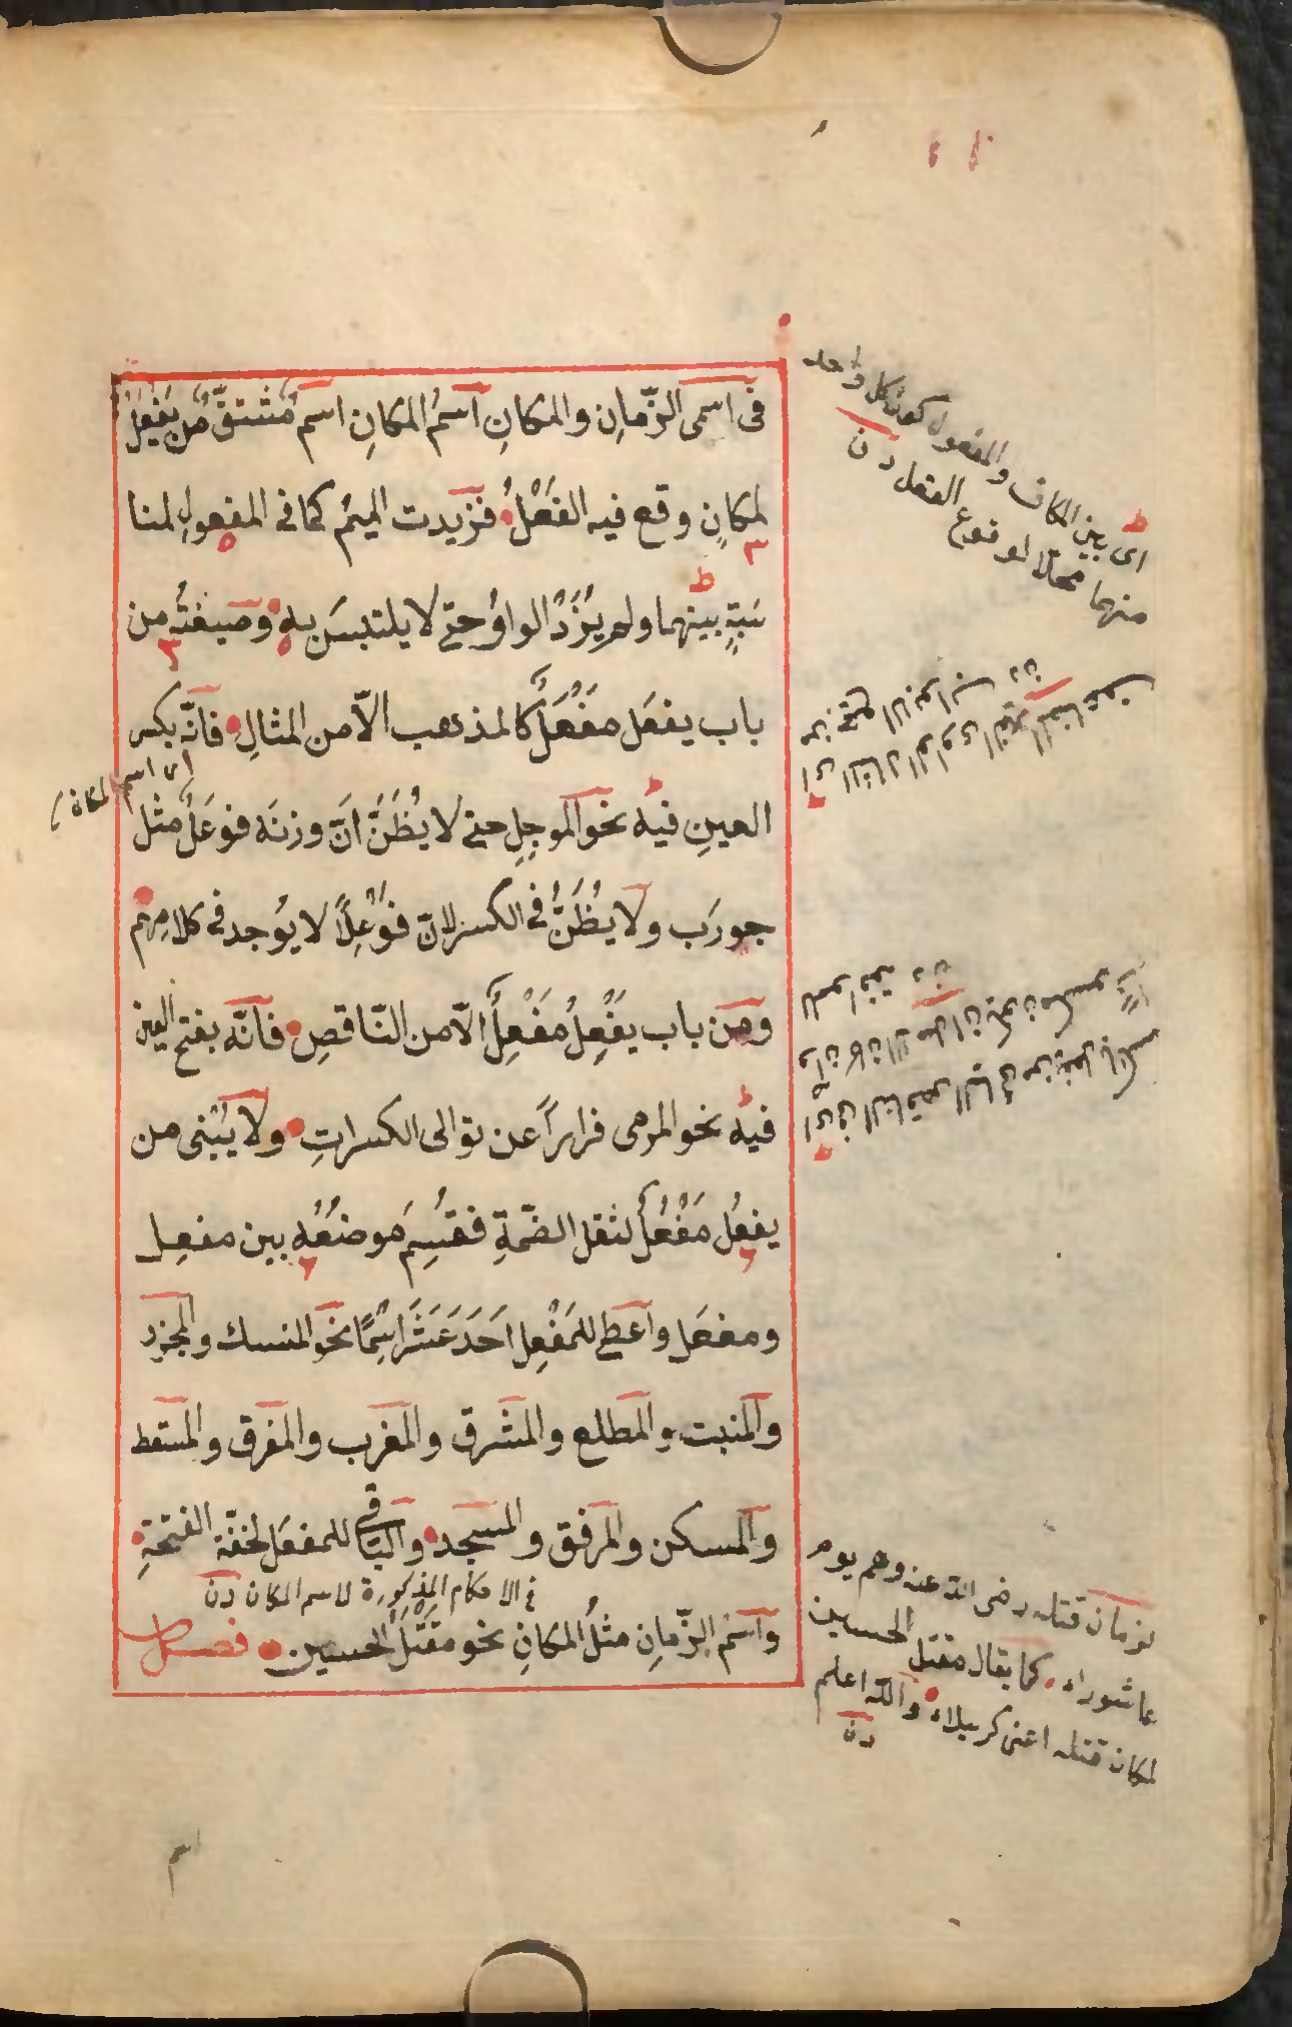 فى اسمى الزّمانِ والمكانِ اسمُ المكانِ اسمٌ مُشتقٌّ مِن يَفعِلُ
لمكانٍ وقع فيه الفَعْلُ فزيدت الميمُ كما فى المفعولِ لمنا
سَبَةٍ بينهما ولم يُزَدْ الواوُ حتى لا يلتبسَ به وصيغتُه من
باب يفعَل مَفْعَلٌ كالمذهب الاّ من المثالِ فانّه بكسر
العينِ فيه نحو الموجِلِ حتى لا يُظَنَّ انَّ وزنَه فَوعَلٌ مثل
جورَب ولا يُظَنُّ فى الكسر لانّ فَوْعِلًا لا يوُجد فى كلامهِم
ومن باب يَفْعِلُ مَفْعِلٌ الاّ من النّاقصِ فانّه بفتح العين
فيه نحو المرمى فرارًا عن توالى الكسراتِ ولا يُبْنى من
يفعُل مَفْعُلٌ لثقل الضّمّةِ فقُسِمَ موضعُه بين مفعِل
ومفعَل واعطى للمَفْعِلِ اَحَدَ عَشَرَ اسْمًا نحو المنسك والمجزر
والمنبت والمطلع والمشرق والمغرب والمفرق والمسقط
والمسكن والمرفق والمسجد والباقى للمفعَل لخفّة الفتحةِ
واسمُ الزّمانِ مثلُ المكانِ نحو مَقْتَلُ الحسين فصل
اى اسم المكان
فى الاحكام المذكورة لاسم المكان دن
اى بين المكان والمفعول كون كل واحد
منهما محلّا لوقوع الفعل دن
لزمان قتله رضى الله عنه وهم يوم
عاشوراء كما يقال مقتل الحسين
لمكان قتله اعنى كربلاء والله اعلم
دن